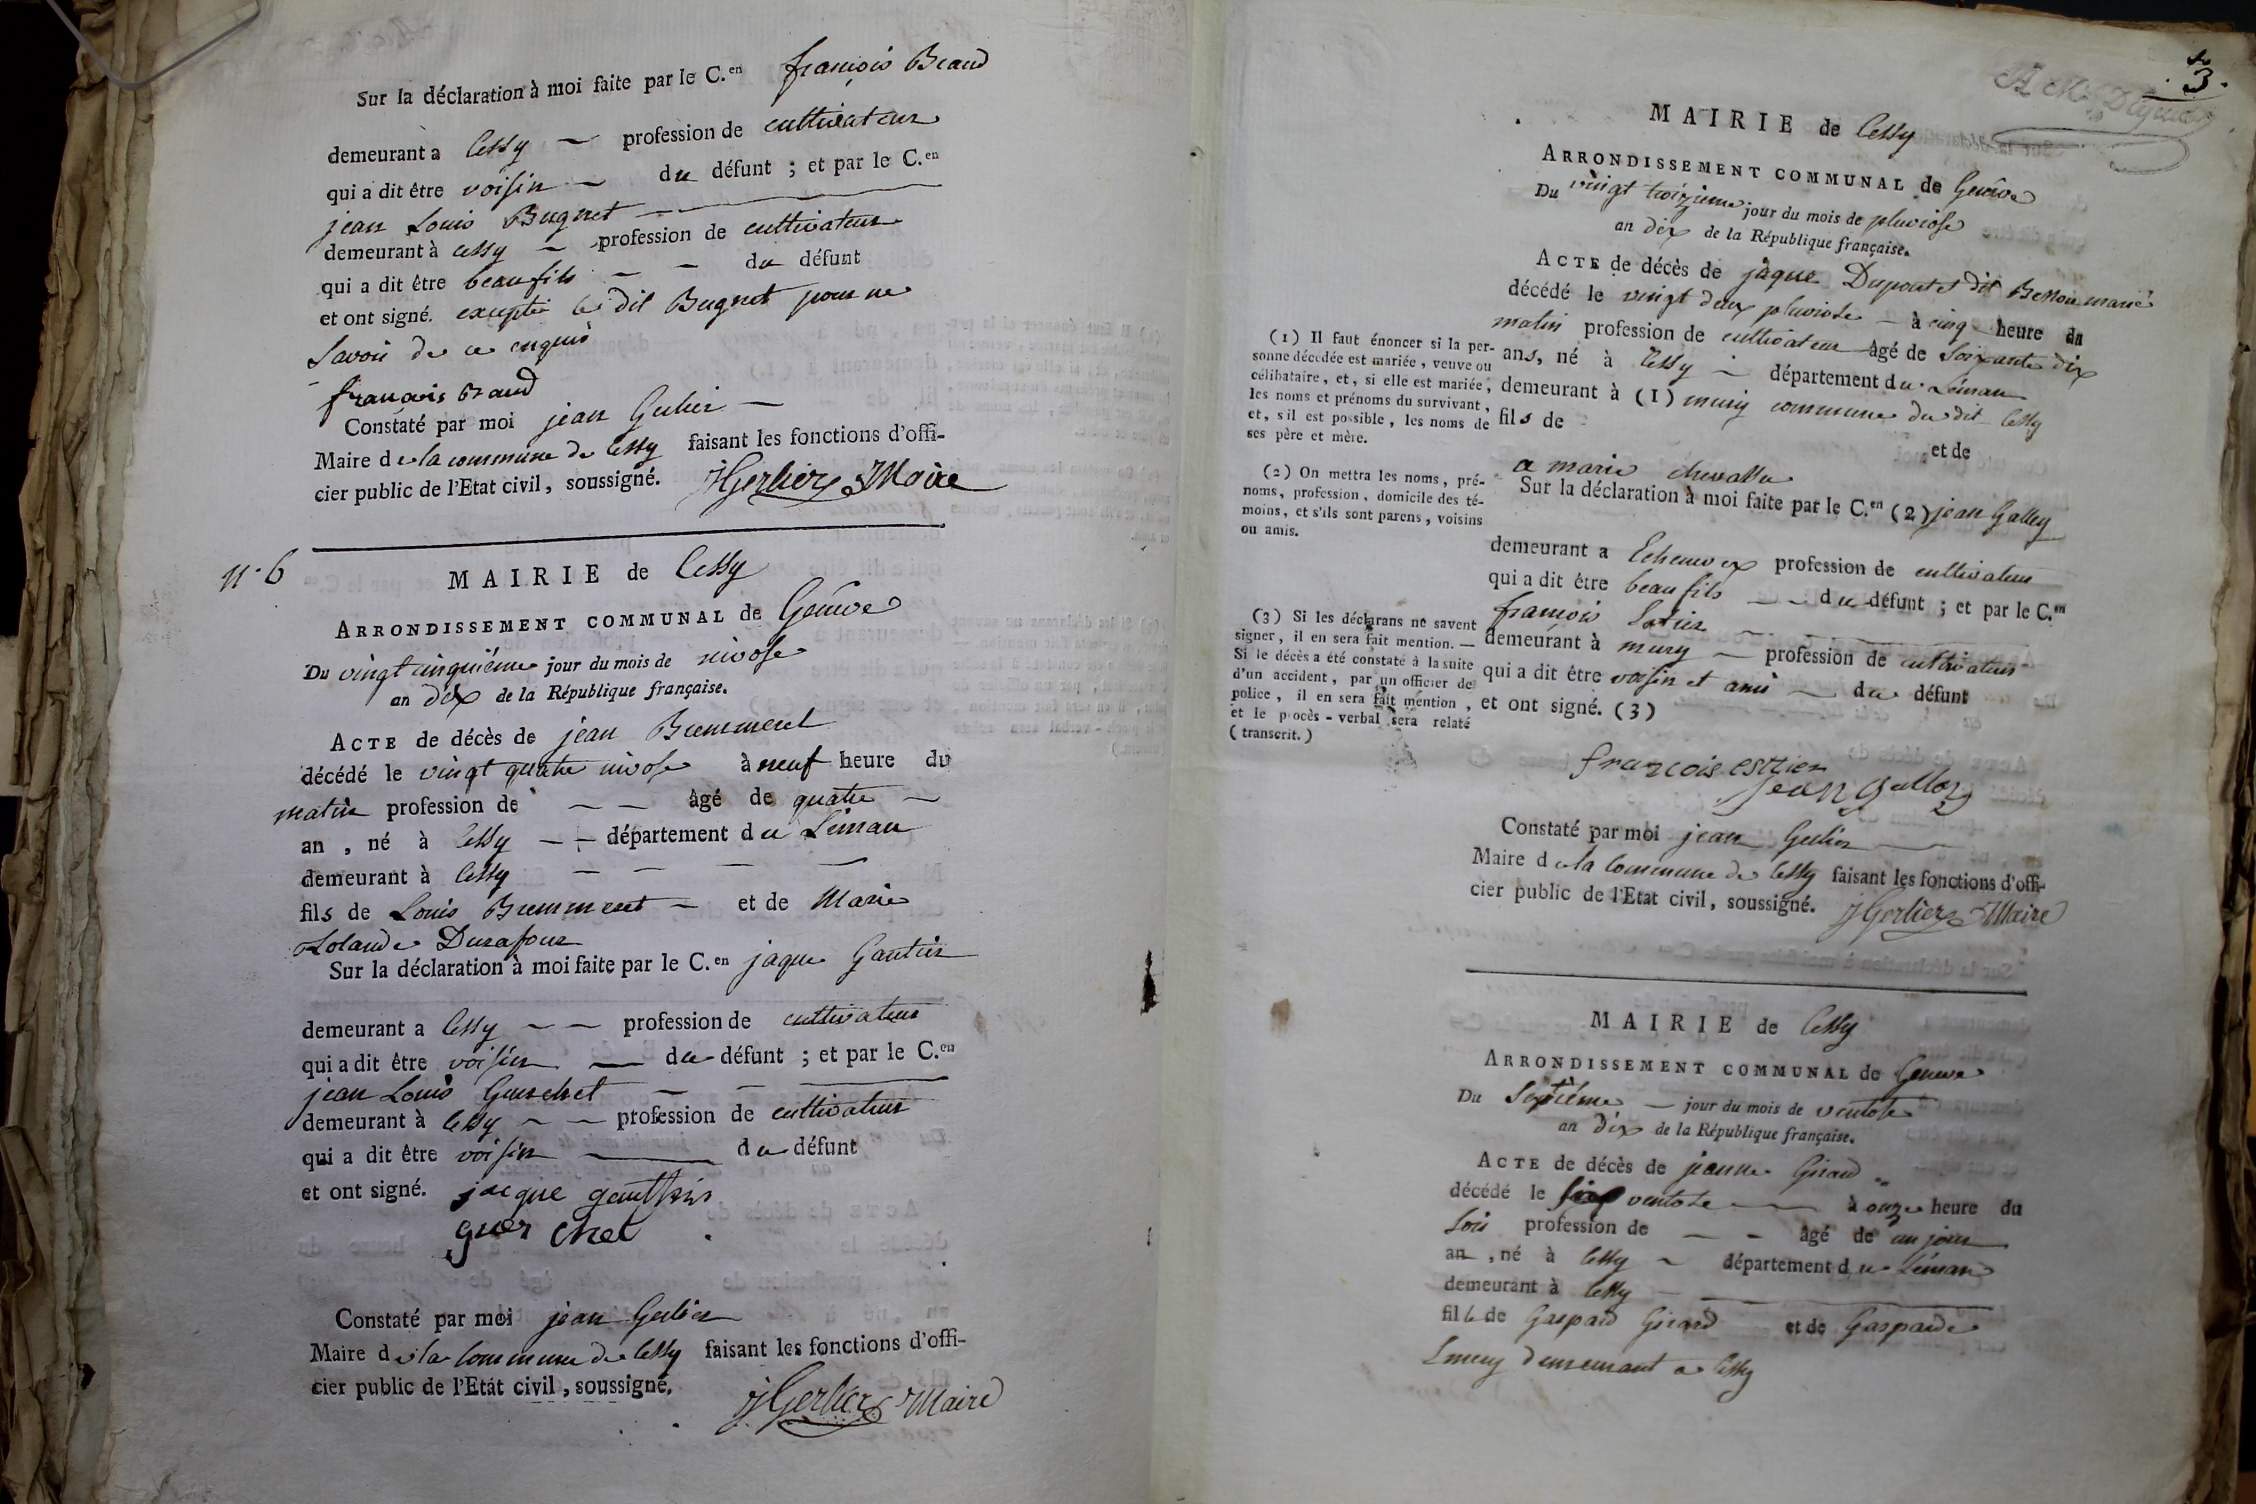 Sur la déclaration à moi faite par le C.en françois Braud
demeurant a Cessy profession de cultivateur
qui a dit être voisin du défunt ; et par le C.en
jean Louis Bugnet
demeurant à Cessy profession de cultivateur
qui a dit être beaufils du défunt
et ont signé. excepté le dit Bugnet pour ne
Savoir de ce enquis
françois Braud
Constaté par moi jean Gerlier
Maire de la commune de Cessy faisant les fonctions d'offi-
cier public de l'Etat civil, soussigné. JGerlier Maire
n.° 6
MAIRIE de Cessy
ARRONDISSEMENT COMMUNAL de Genève
Du vingt cinquième jour du mois de nivose
an dix de la République française.
ACTE de décès de jean Bummert
décédé le vingt quatre nivose à neuf heure du
matin profession de âgé de quatre
an , né à Cessy département du Léman
demeurant à Cessy
fils de Louis Bummert et de Marie
Lolande Durafour
Sur la déclaration à moi faite par le C.en jaque Gautier
demeurant a Cessy profession de cultivateur
qui a dit être voisin du défunt ; et par le C.en
jean Louis Guerchet
demeurant à Cessy profession de cultivateur
qui a dit être voisin du défunt
et ont signé. jacque gauthier
guerchet
Constaté par moi jean Gerlier
Maire de la commune de Cessy faisant les fonctions d'offi-
cier public de l'Etat civil, soussigné. JGerlier Maire
3.
MAIRIE de Cessy
ARRONDISSEMENT COMMUNAL de Genève
Du vingt troizieme jour du mois de pluviose
an dix de la République française.
ACTE de décès de jàque Dupontet dit Besson marié
décédé le vingt deux pluviose à cinq heure du
matin profession de cultivateur âgé de Soixante dix
ans, né à Cessy département du Léman
demeurant à (1) mury commune du dit Cessy
fils de
et de
a marie chevallu
Sur la déclaration à moi faite par le C.en (2) jean Galley
demeurant a Echenevex profession de cultivateur
qui a dit être beau fils du défunt ; et par le C.en
francois
demeurant à mury profession de cultivateur
qui a dit être voisin et ami du défunt
et ont signé. (3)
(1) Il faut énoncer si la per-
sonne décédée est mariée, veuve ou
célibataire, et, si elle est mariée,
les noms et prénoms du survivant,
et, s'il est possible, les noms de
ses père et mère.
(2) On mettra les noms, pré-
noms, profession, domicile des té-
moins, et s'ils sont parens, voisins
ou amis.
(3) Si les déclarans ne savent
signer, il en sera fait mention. —
Si le décès a été constaté à la suite
d'un accident, par un officier de
police, il en sera fait mention,
et le procès-verbal sera relaté
(transcrit.)
francois
jean galley
Constaté par moi jean Gerlier
Maire de la Commune de Cessy faisant les fonctions d'offi-
cier public de l'Etat civil, soussigné. JGerlier Maire
MAIRIE de Cessy
ARRONDISSEMENT COMMUNAL de Geneve
Du Septième jour du mois de ventose
an dix de la République française.
ACTE de décès de jeanne Girard
décédé le six ventose à onze heure du
Soir profession de âgé de un jour
an , né à Cessy département du Léman
demeurant à Cessy
fille de Gaspard Girard et de Gasparde
Emery demeurant a Cessy